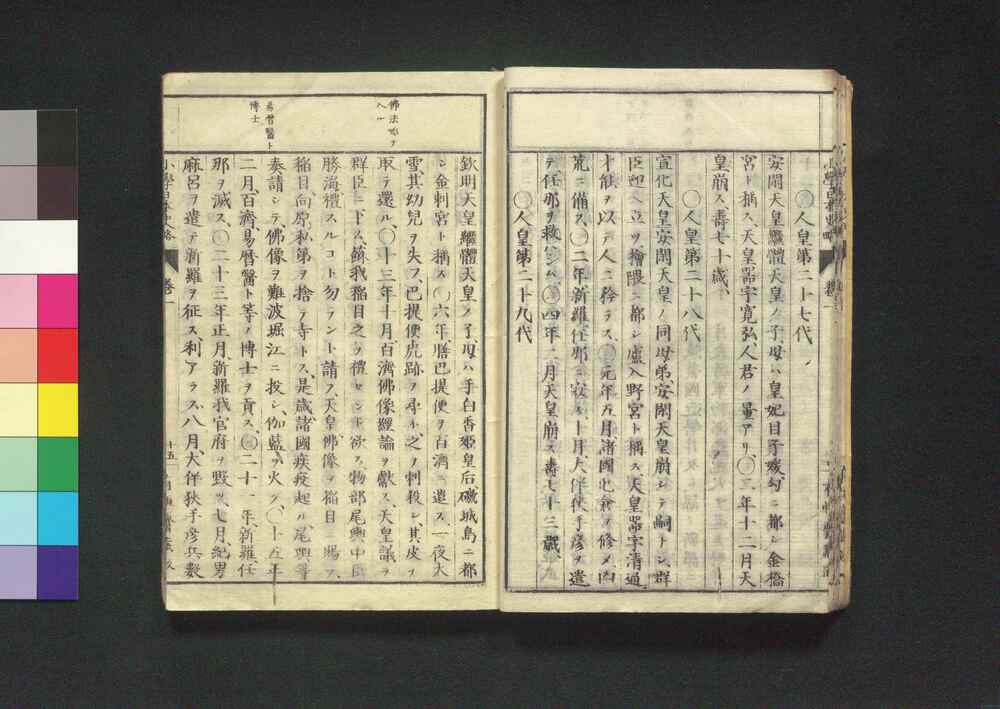 人皇第二十七代
安閑天皇繼體天皇ノ子、母ハ皇妃目子媛、勾ニ都シ金橋
宮ト稱ス、天皇器宇寛弘、人君ノ量アリ、二年十二月天
皇崩ス、壽七十歲、
人皇第二十八代
宣化天皇安閑天皇ノ同母弟、安閑天皇崩シテ嗣ナシ、群
臣迎ヘ立ツ、檜隈ニ都シ盧入野宮ト稱ス、天皇器宇清通
才能ヲ以テ人ニ矜ラス、元年五月諸國ニ倉ヲ修メ凶
荒ニ備ス、二年新羅任那ニ寇ス、十月大伴狹手彦ヲ遣
テ任那ヲ救ハシム、四年二月天皇崩ス、壽七十三歲、
人皇第二十九代
佛法始テ
入ル
易曆醫ト
博士
欽明天皇繼體天皇ノ子、母ハ手白香姫皇后、磯城島ニ都
シ金刺宮ト稱ス、六年、膳巴提便ヲ百濟ニ遣ス、一夜大
雪、其幼兒ヲ失フ、巴提便虎跡ヲ尋ネ、之ヲ刺殺シ、其皮ヲ
取テ還ル、十三年十月、百濟佛像經論ヲ獻ス、天皇議ヲ
群臣ニ下ス、蘇我稻目之ヲ禮セント欲ス、物部尾輿中臣
勝海、禮スルコト勿ラント請フ、天皇佛像ヲ稻目ニ賜フ、
稻目、向原ノ私第ヲ捨テ寺トス、是歲諸國疾疫起ル、尾輿等
奏請シテ、佛像ヲ難波堀江ニ投シ、伽藍ヲ火ク、十五年
二月、百濟、易曆醫ト等ノ博士ヲ貢ス、二十一年、新羅、任
那ヲ滅ス、二十三年正月、新羅我官府ヲ毀ツ、七月、紀男
麻呂ヲ遣テ新羅ヲ征ス、利アラス、八月、大伴狹手彦、兵數
卷一
十五